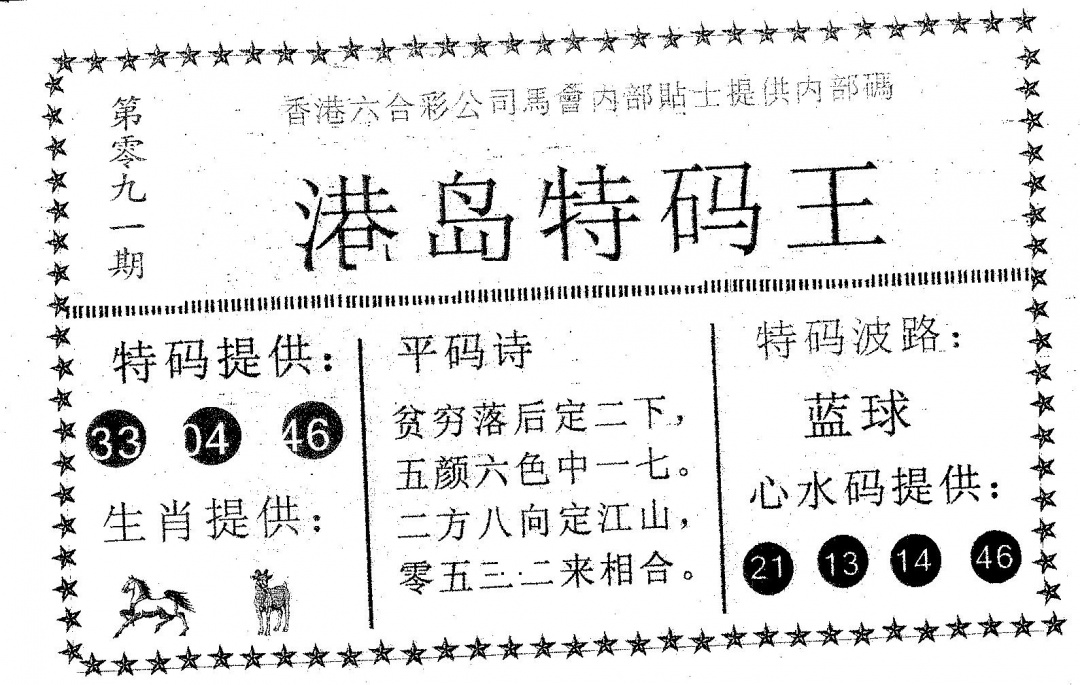 第零九一期
香港六合彩公司馬會内部貼士提供内部碼
港岛特码王
特码提供：
33 04 46
生肖提供：
平码诗
贫穷落后定二下，
五颜六色中一七。
二方八向定江山，
零五三·二来相合。
特码波路：
蓝球
心水码提供：
21 13 14 46